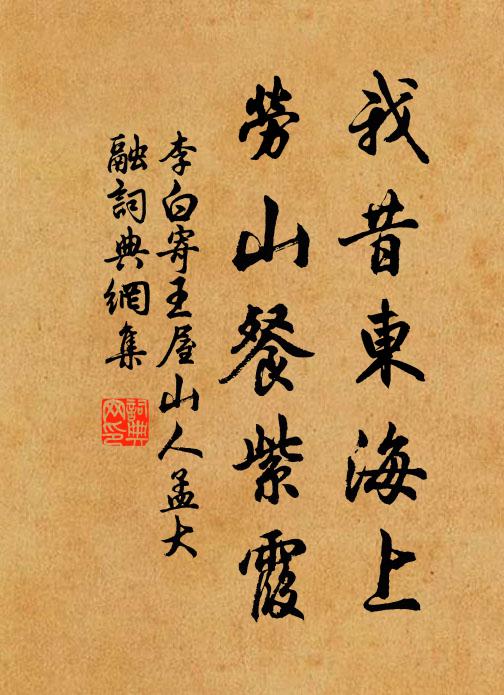 我昔東海上
勞山餐紫霞
李白寄王屋山人孟大
融詞典網集
詞典
网印